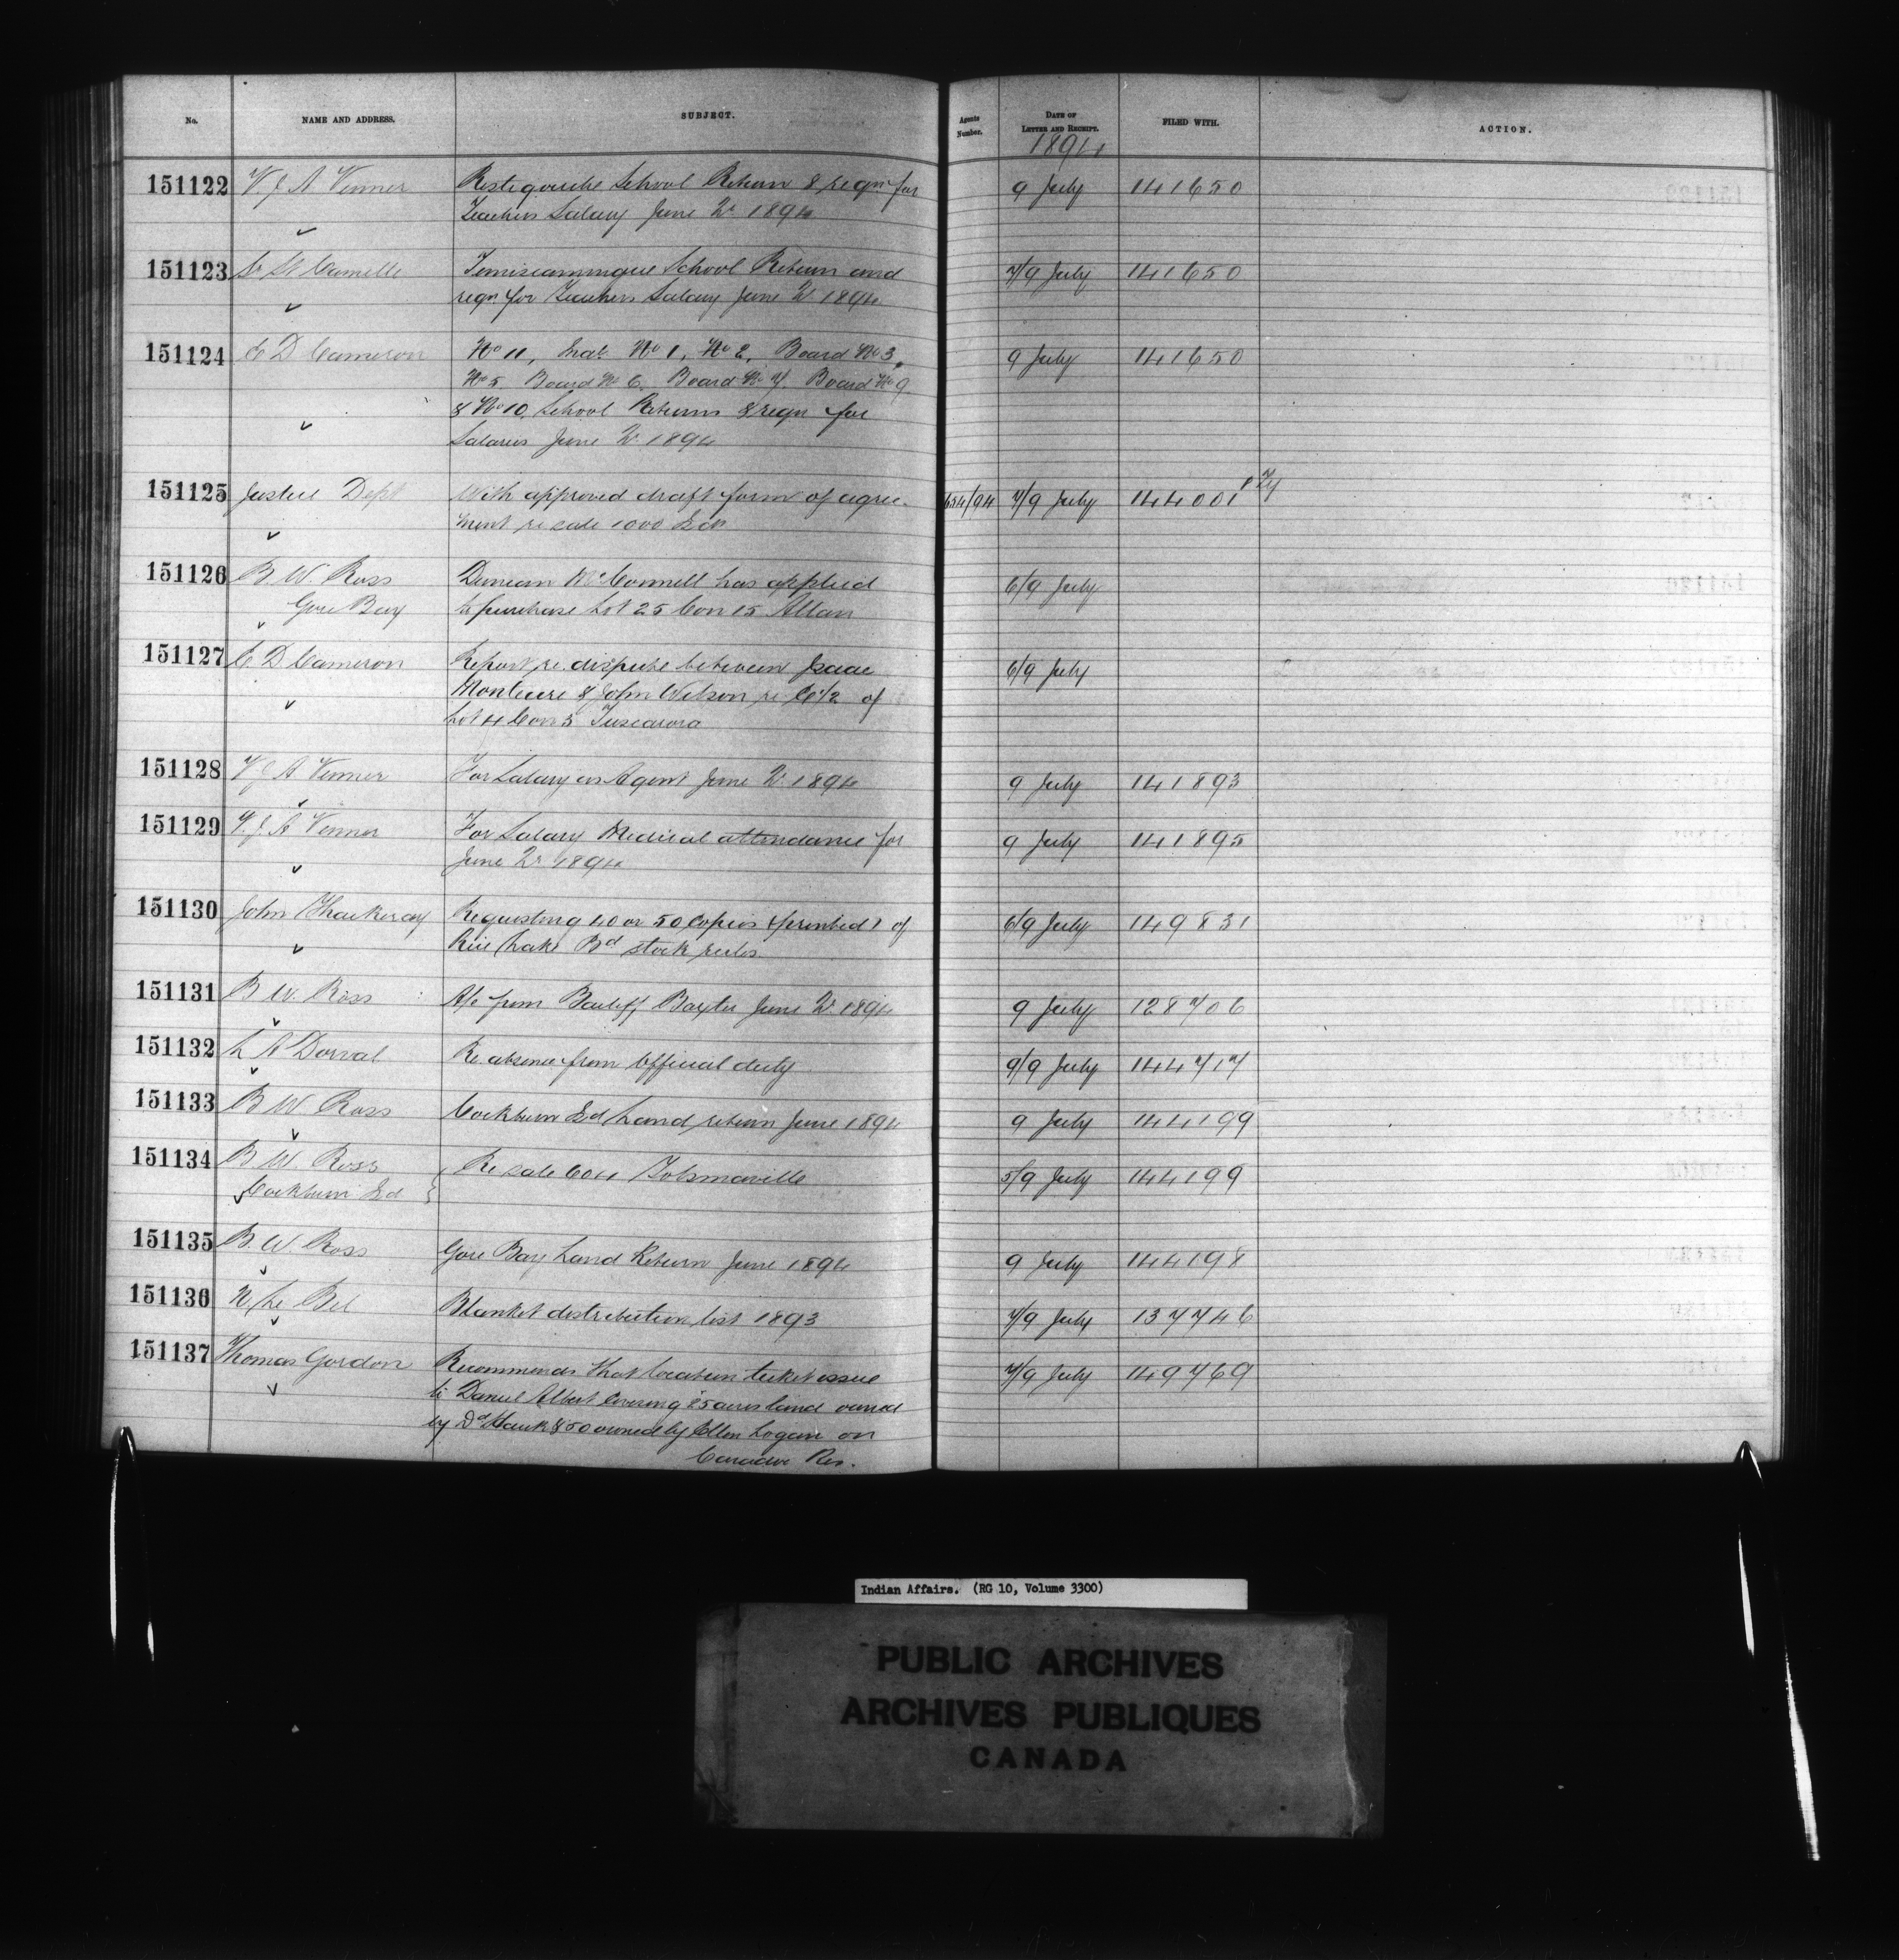 No. NAME AND ADDRESS. SUBJECT. Agents Number. DATE OF LETTER AND RECEIPT. FILED WITH. ACTION.
1894
151122 V. J. A Venner Restigouche School Return & reqn for 9 July 141650
Teachers Salary June Qr 1894
151123 St Camille Temiscamingue School Return and 7/9 July 141650
reqn for Teachers Salary June Qr 1894
151124 E D Cameron No 11, No 1, No 2, Board No 3, 9 July 141650
No 5. Board No 6. Board No 7. Board No 9
& No 10. School Returns & reqn for
Salaries June Qr 1894
151125 Justice Dept With approved draft form of agree- 654/94 7/9 July 144001
ment re sale 1000 Ids
151126 B. W. Ross Duncan McConnell has applied 6/9 July
Gore Bay to purchase Lot 25 Con 15 Allan
151127 E D Cameron Report re dispute between Isaac 6/9 July
Monture & John Wilson re E 1/2 of
Lot 4 Con 5 Tuscarora
151128 V J A Venner For Salary as Agent June Qr 1894 9 July 141893
151129 V. J. A Venner For Salary Medical attendance for 9 July 141895
June Qr 1894
151130 John Thackeray Requesting 40 or 50 Copies (printed) of 6/9 July 149831
Rice Lake Bd stock rules.
151131 B W. Ross A/c from Bailiff Baxter June Qr 1894 9 July 128706
151132 L A Dorval Re. absence from Official duty 9/9 July 144717
151133 B W Ross Cockburn Id Land return June 1894 9 July 144199
151134 B. W. Ross Re sale 604 Tolsmaville 5/9 July 144199
Cockburn Id
151135 B. W. Ross Gore Bay Land Return June 1894 9 July 144198
151136 N Le Bel Blanket distribution list 1893 7/9 July 137746
151137 Thomas Gordon Recommends that location ticket issue 7/9 July 149769
to Daniel Albert covering 25 acres land owned
by Dd Hawk & 50 owned by Ellen Logan on
Caradoc Res.
Indian Affairs. (RG 10, Volume 3300)
PUBLIC ARCHIVES
ARCHIVES PUBLIQUES
CANADA